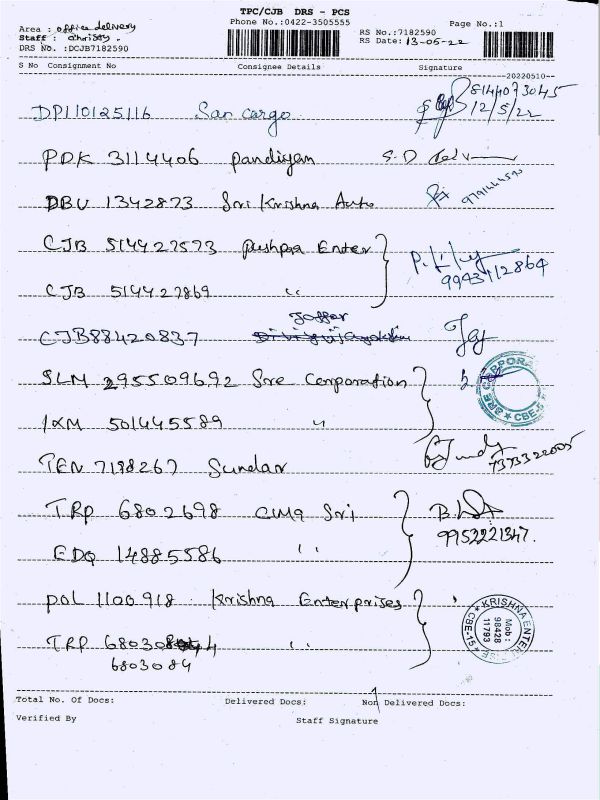 TPC/CJB DRS - PCS
Phone No.:0422-3505555
Page No.:1
Area : office delivery
Staff : christy.
DRS No. :DCJB7182590
RS No.:7182590
RS Date: 13-05-22
S No Consignment No Consignee Details Signature
20220510
DP110125116 San cargo 8144073045
12/5/22
PDK 3114406 pandiyan S.D
DBU 1342873 Sri Krishna Auto
CJB 514427573 pushpa Enter
9943112864
CJB 514427869 "
Jaffar
CJB88420837
SLM 295509692 Sre Corporation
SRE CORPORA CBE-5
IXM 501445589 "
TEN 7198267 Sundar 7373322005
TRP 6802698 Uma Sri
9952221347.
EDQ 14885586 "
POL 1100918 Krishna Enterprises
KRISHNA ENTERPRISE CBE-15
Mob : 98428 11793
TRP 6803084 "
6803084
Total No. Of Docs: Delivered Docs: Non Delivered Docs:
Verified By Staff Signature